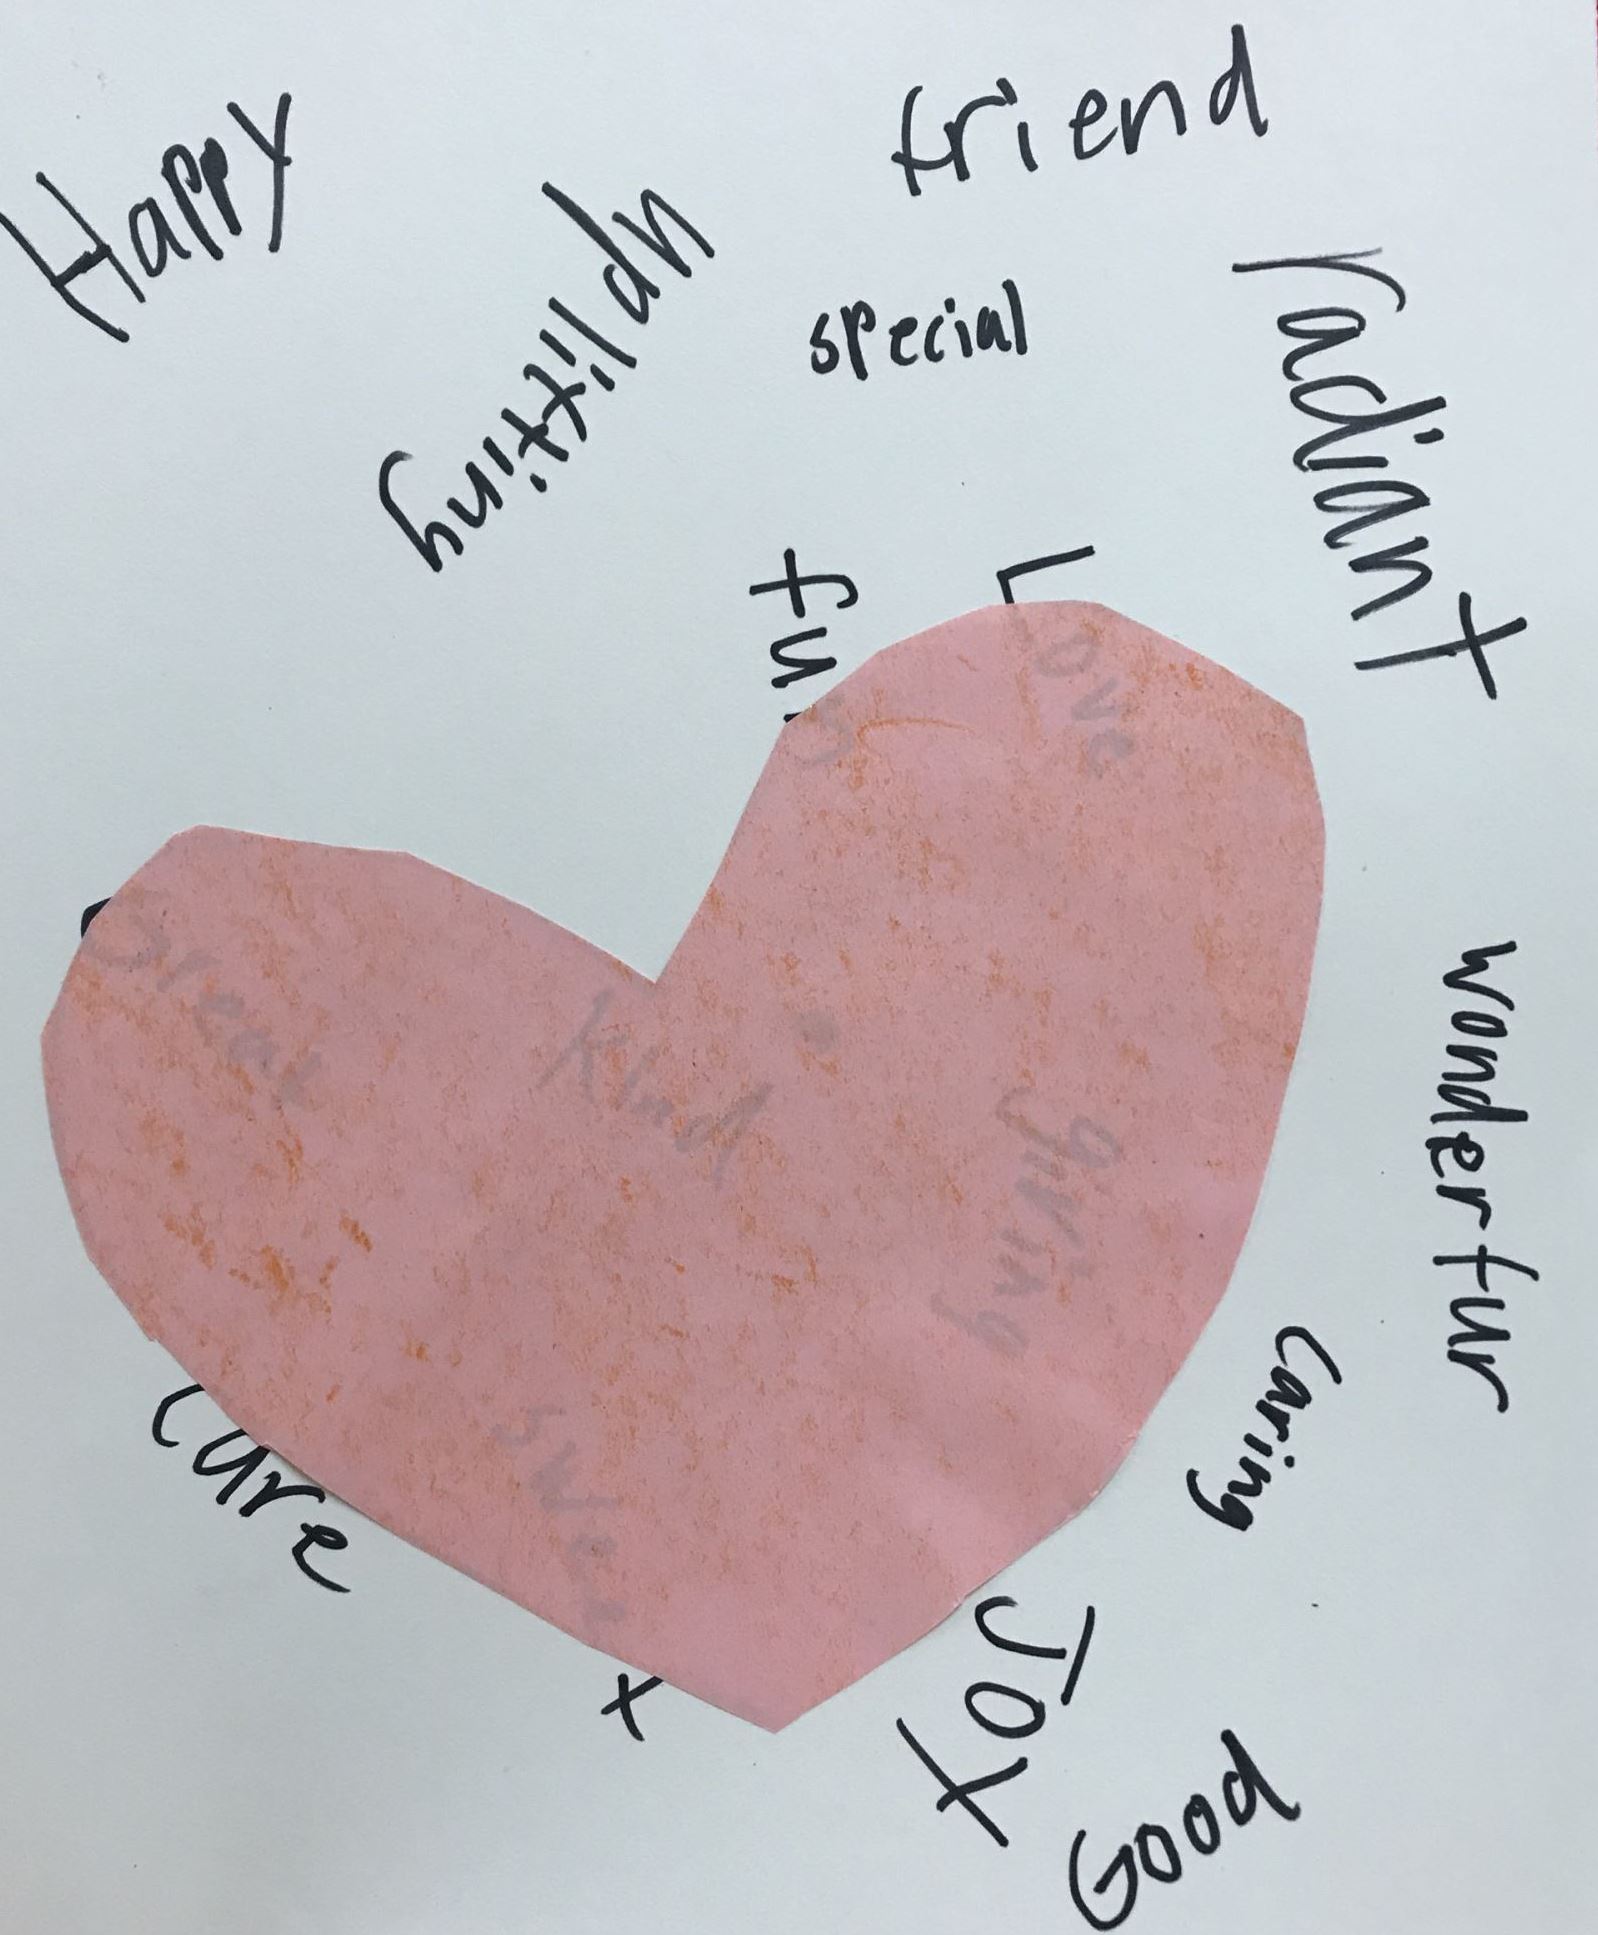 friend
Happy
uplifting
special
radiant
fun
Love
Great
Kind
giving
wonderfur
caring
sweet
care
JOY
GOOD